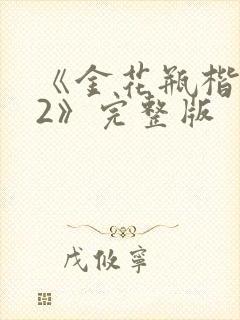 《金花瓶楷
2》完整版
戊攸寜